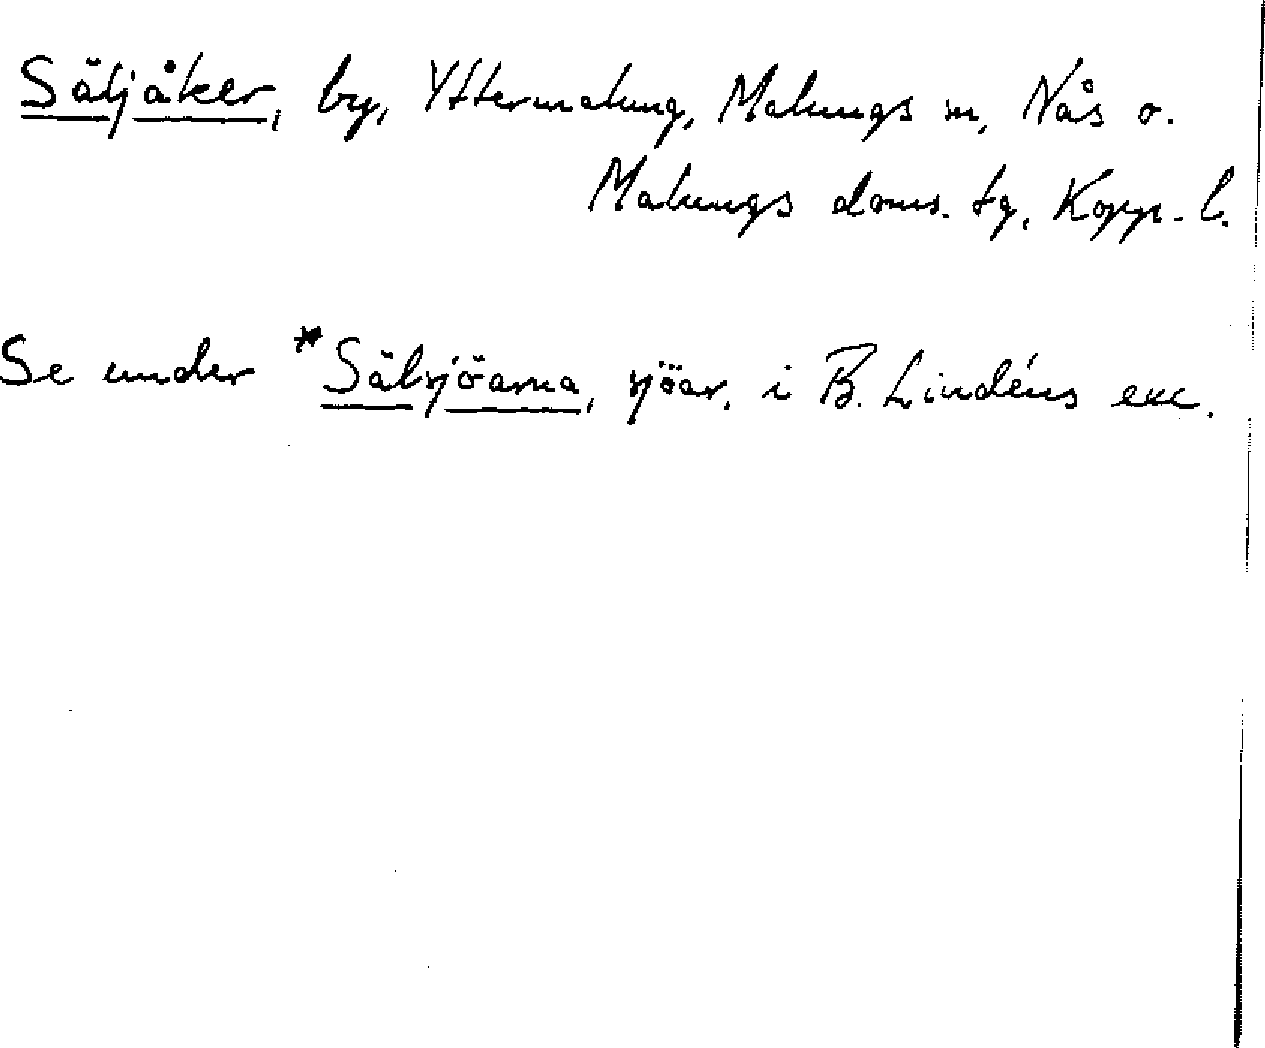 Säljåker, by, Yttermalung, Malungs sn, Nås o.
Malungs doms. tg, Kopp. l.
Se under *Sälsjöarna, sjöar, i B. Lindéns exc.